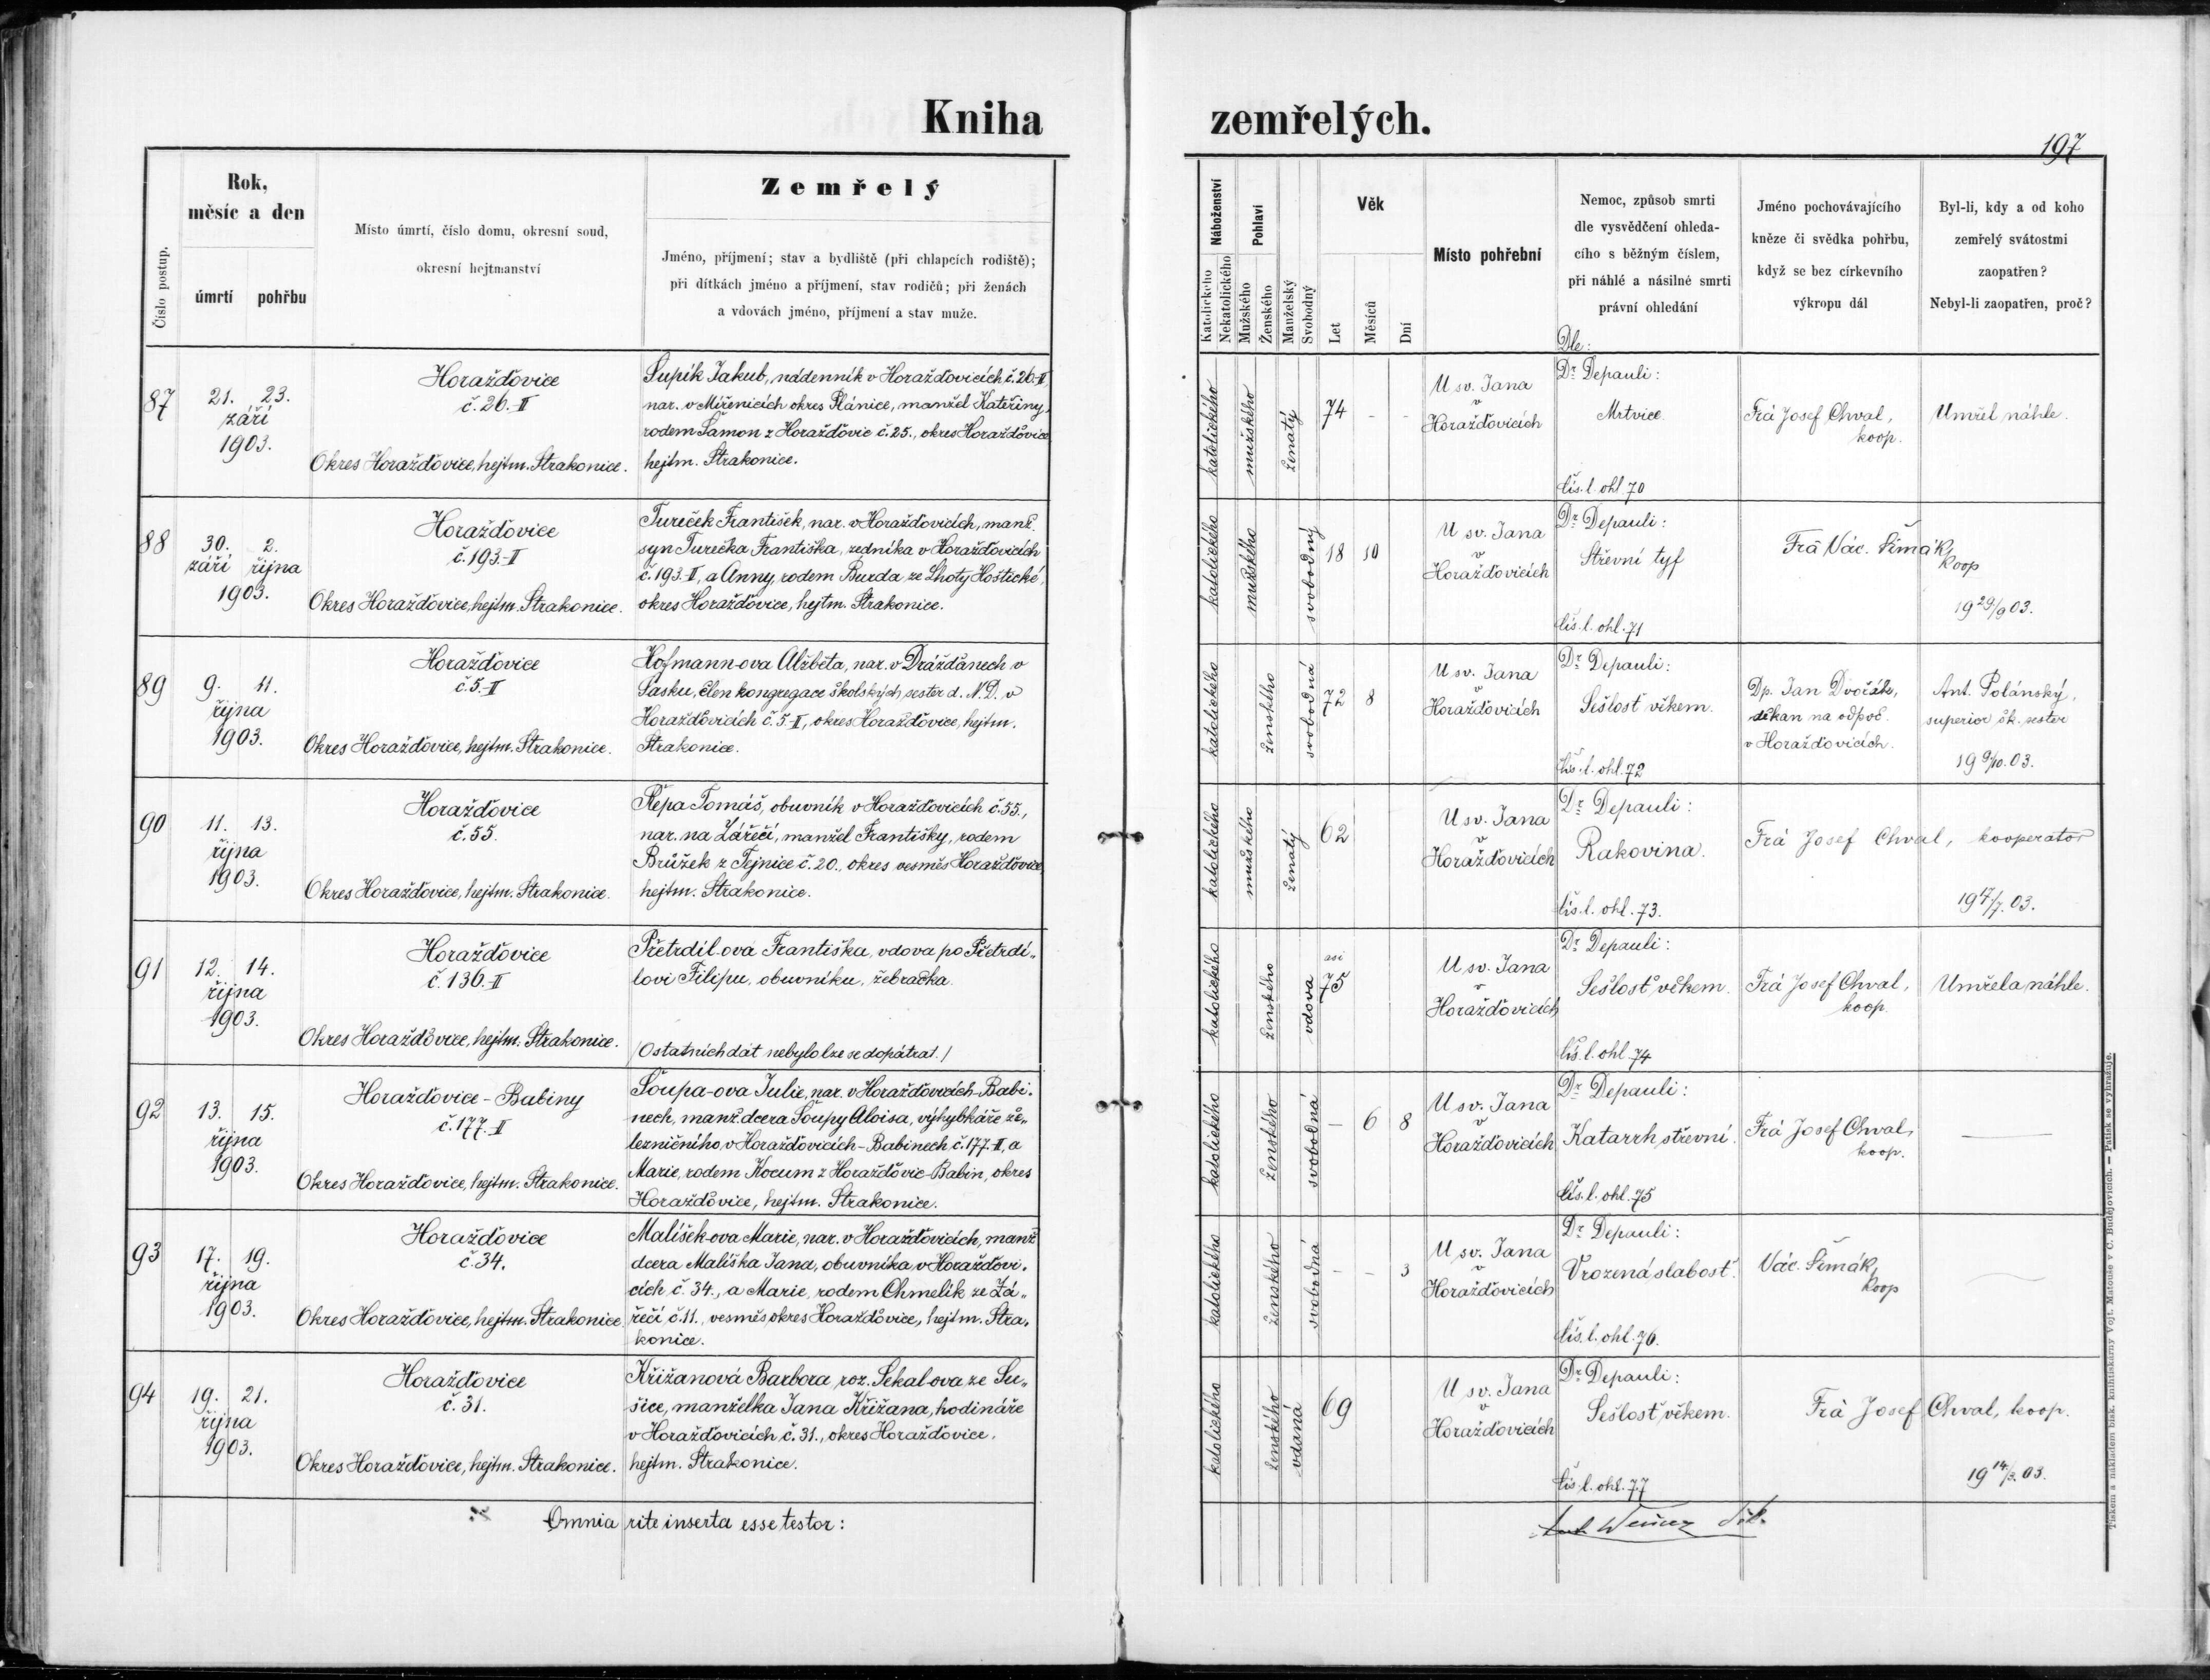 Kniha zemřelých.
197
Číslo postup.
Rok,
měsíc a den
úmrtí pohřbu
Místo úmrtí, číslo domu, okresní soud,
okresní hejtmanství
Zemřelý
Jméno, příjmení; stav a bydliště (při chlapcích rodiště);
při dítkách jméno a příjmení, stav rodičů; při ženách
a vdovách jméno, příjmení a stav muže.
Náboženství
Katolického
Nekatolického
Pohlaví
Mužského
Ženského
Manželský
Svobodný
Věk
Let
Měsíců
Dní
Místo pohřební
Nemoc, způsob smrti
dle vysvědčení ohleda-
cího s běžným číslem,
při náhlé a násilné smrti
právní ohledání
Dle:
Jméno pochovávajícího
kněze či svědka pohřbu,
když se bez církevního
výkropu dál
Byl-li, kdy a od koho
zemřelý svátostmi
zaopatřen?
Nebyl-li zaopatřen, proč?
87
21. 23.
září
1903.
Horažďovice
č. 26.-II
Okres Horažďovice, hejtm. Strakonice.
Supík Jakub, nádenník v Horažďovicích č. 26-II,
nar. v Míženicích okres Plánice, manžel Kateřiny,
rodem Šamon z Horažďovic č. 25., okres Horažďovice
hejtm. Strakonice.
katolického
mužského
ženatý
74 - -
U sv. Jana
v
Horažďovicích
Dr. Depauli:
Mrtvice.
čís. l. ohl. 70
Frá Josef Chval,
koop.
Umřel náhle.
88
30. 2.
září října
1903.
Horažďovice
č. 193-II
Okres Horažďovice, hejtm. Strakonice.
Tureček František, nar. v Horažďovicích, manž.
syn Turečka Františka, zedníka v Horažďovicích
č. 193. II, a Anny, rodem Burda ze Lhoty Hoštické,
okres Horažďovice, hejtm. Strakonice.
katolického
mužského
svobodný
18 10
U sv. Jana
v
Horažďovicích
Dr. Depauli:
Střevní tyf
čís. l. ohl. 71
Frá Vác. Šimák,
koop
19 29/9 03.
89
9. 11.
října
1903.
Horažďovice
č. 5-II
Okres Horažďovice, hejtm. Strakonice.
Hofmann-ova Alžběta, nar. v Drážďanech v
Sasku, člen kongregace školských sester d. N. D. v
Horažďovicích č. 5-II, okres Horažďovice, hejtm.
Strakonice.
katolického
ženského
svobodná
72 8
U sv. Jana
v
Horažďovicích
Dr. Depauli:
Sešlosť věkem.
čís. l. ohl. 72
Dp. Jan Dvořák,
děkan na odpoč.
v Horažďovicích.
Ant. Polánský,
superior šk. sester
19 9/10. 03.
90
11. 13.
října
1903.
Horažďovice
č. 55.
Okres Horažďovice, hejtm. Strakonice.
Řepa Tomáš, obuvník v Horažďovicích č. 55.,
nar. na Zářečí, manžel Františky, rodem
Brůžek z Tejnice č. 20., okres vesměs Horažďovice,
hejtm. Strakonice.
katolického
mužského
ženatý
62
U sv. Jana
v
Horažďovicích
Dr. Depauli:
Rakovina.
čís. l. ohl. 73.
Frá Josef Chval, kooperator
19 17/7. 03.
91
12. 14.
října
1903.
Horažďovice
č. 136.-II
Okres Horažďovice, hejtm. Strakonice.
Přetrdíl-ová Františka, vdova po Přetrdí„
lovi Filipu, obuvníku, žebračka.
/Ostatních dat nebylo lze se dopátrat./
katolického
ženského
vdova
asi
75
U sv. Jana
v
Horažďovicích
Dr. Depauli:
Sešlosť věkem.
čís. l. ohl. 74
Frá Josef Chval,
koop.
Umřela náhle.
92
13. 15.
října
1903.
Horažďovice - Babiny
č. 177.-II
Okres Horažďovice, hejtm. Strakonice.
Šoupa-ova Julie, nar. v Horažďovicích-Babi„
nech, manž. dcera Šoupy Aloisa, výhybkáře že„
lezničního, v Horažďovicích-Babinech č. 177. II, a
Marie, rodem Kocum z Horažďovic-Babin, okres
Horažďovice, hejtm. Strakonice.
katolického
ženského
svobodná
- 6 8
U sv. Jana
v
Horažďovicích
Dr. Depauli:
Katarrh střevní.
čís. l. ohl. 75
Frá Josef Chval,
koop.
—
93
17. 19.
října
1903.
Horažďovice
č. 34.
Okres Horažďovice, hejtm. Strakonice.
Malíšek-ova Marie, nar. v Horažďovicích, manž
dcera Malíška Jana, obuvníka v Horažďovi„
cích č. 34., a Marie, rodem Chmelík ze Zá„
řečí č. 11., vesměs okres Horažďovice, hejtm. Stra„
konice.
katolického
ženského
svobodná
- - 3
U sv. Jana
v
Horažďovicích
Dr. Depauli:
Vrozená slabosť.
čís. l. ohl. 76.
Vác. Šimák,
koop
—
94
19. 21.
října
1903.
Horažďovice
č. 31.
Okres Horažďovice, hejtm. Strakonice.
Křižanová Barbora roz. Sekal-ova ze Su„
šice, manželka Jana Křižana, hodináře
v Horažďovicích č. 31., okres Horažďovice,
hejtm. Strakonice.
katolického
ženského
vdaná
69
U sv. Jana
v
Horažďovicích
Dr. Depauli:
Sešlosť věkem.
čís. l. ohl. 77
Frá Josef Chval, koop.
19 14/3. 03.
Omnia rite inserta esse testor:
Tiskem a nákladem bisk. knihtiskárny Vojt. Matouše v Č. Budějovicích. — Patisk se vyhražuje.